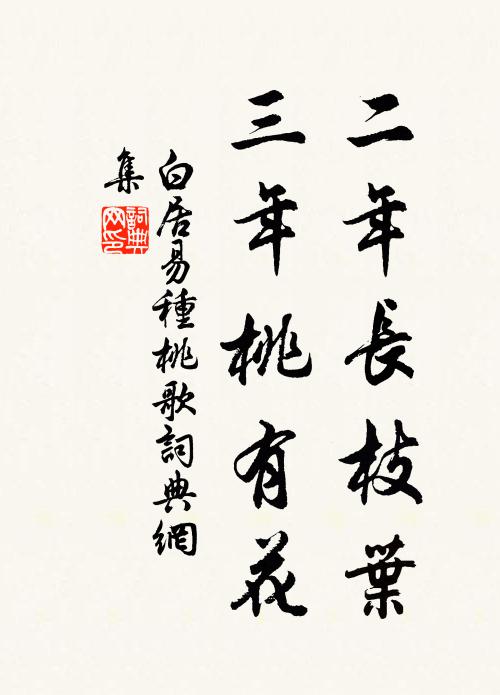 二年長枝葉
三年桃有花
白居易種桃歌詞典網
集
詞典
网印